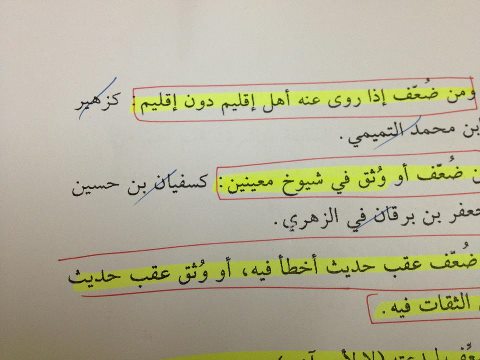 ومن ضُعّف إذا روى عنه أهل إقليم دون إقليم: كزهير
ابن محمد التميمي.
ن ضُعّف أو وُثق في شيوخ معينين: كسفيان بن حسين
جعفر بن برقان في الزهري.
ضُعّف عقب حديث أخطأ فيه، أو وُثق عقب حديث
الثقات فيه.